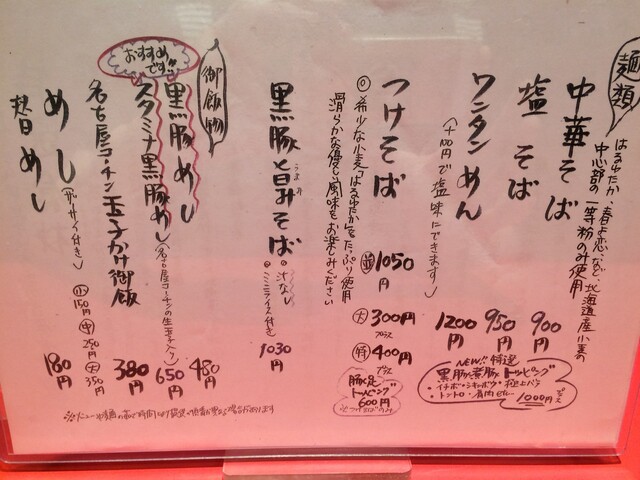 麺類
はるゆたか、春よ恋、など、北海道産小麦の
中心部の一等粉のみ使用
中華そば 900円
塩そば 950円
ワンタンめん 1200円
(+100円で塩味にできます)
つけそば
◎希少な小麦「はるゆたか」をたっぷり使用
滑らかな優しい風味をお楽しみください
並 1050円
大 300円プラス
特 400円プラス
豚足トッピング
600円
NEW!! 特選
黒豚叉豚トッピング
1000円プラス
黒豚旨みそば
うまみ
汁なし
ミニライス付き
1030円
御飯物
おすすめです!!
黒豚めし 480円
スタミナ黒豚めし(名古屋コーチンの生玉子入り) 650円
名古屋コーチン玉子かけ御飯 380円
めし(ザーサイ付き)
小 150円
中 250円
大 350円
替めし 180円